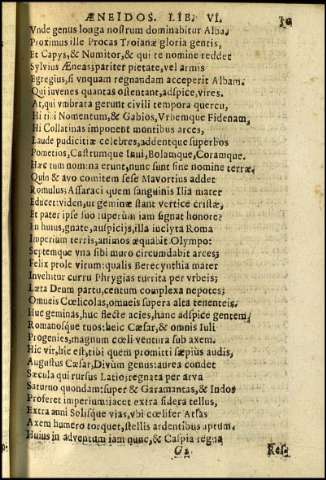 ÆNEIDOS. LIB. VI.
Vnde genus longa nostrum dominabitur Alba.
Proximus ille Procas Troianæ gloria gentis,
Et Capys, & Numitor, & qui te nomine reddet
Sylvius Æneas: pariter pietate, vel armis
Egregius, si vnquam regnandam acceperit Albam.
Qui iuvenes quantas ostentant, adspice, vires.
At, qui vmbrata gerunt civili tempora quercu,
Hi tibi Nomentum, & Gabios, Vrbemque Fidenam,
Hi Collatinas imponent montibus arces,
Laude pudicitiæ celebres, addentque superbos
Pometios, Castrumque Inui, Bolamque, Coramque.
Hæc tum nomina erunt, nunc sunt sine nomine terræ.
Quin & avo comitem sese Mavortius addet
Romulus: Assaraci quem sanguinis Ilia mater
Educet: viden, ut geminæ stant vertice cristæ,
Et pater ipse suo superum iam signat honore?
En huius, gnate, auspicijs, illa inclyta Roma
Imperium terris, animos æquabit Olympo:
Septemque vna sibi muro circumdabit arces;
Felix prole virum: qualis Berecynthia mater
Invehitur curru Phrygias turrita per vrbeis;
Læta Deum partu, centum complexa nepotes;
Omneis Cœlicolas, omneis supera alta tenenteis.
Huc geminas, huc flecte acies, hanc adspice gentem,
Romanosque tuos: heic Cæsar, & omnis Iuli
Progenies, magnum cœli ventura sub axem.
Hic vir, hic est, tibi quem promitti sæpius audis,
Augustus Cæsar, Divûm genus: aurea condet
Sæcula qui rursus Latio; regnata per arva
Saturno quondam: super & Garamantas, & Indos
Proferet imperium: iacet extra sidera tellus,
Extra anni Solisque vias, vbi cœlifer Atlas
Axem humero torquet, stellis ardentibus aptum.
Huius in adventum iam nunc, & Caspia regna